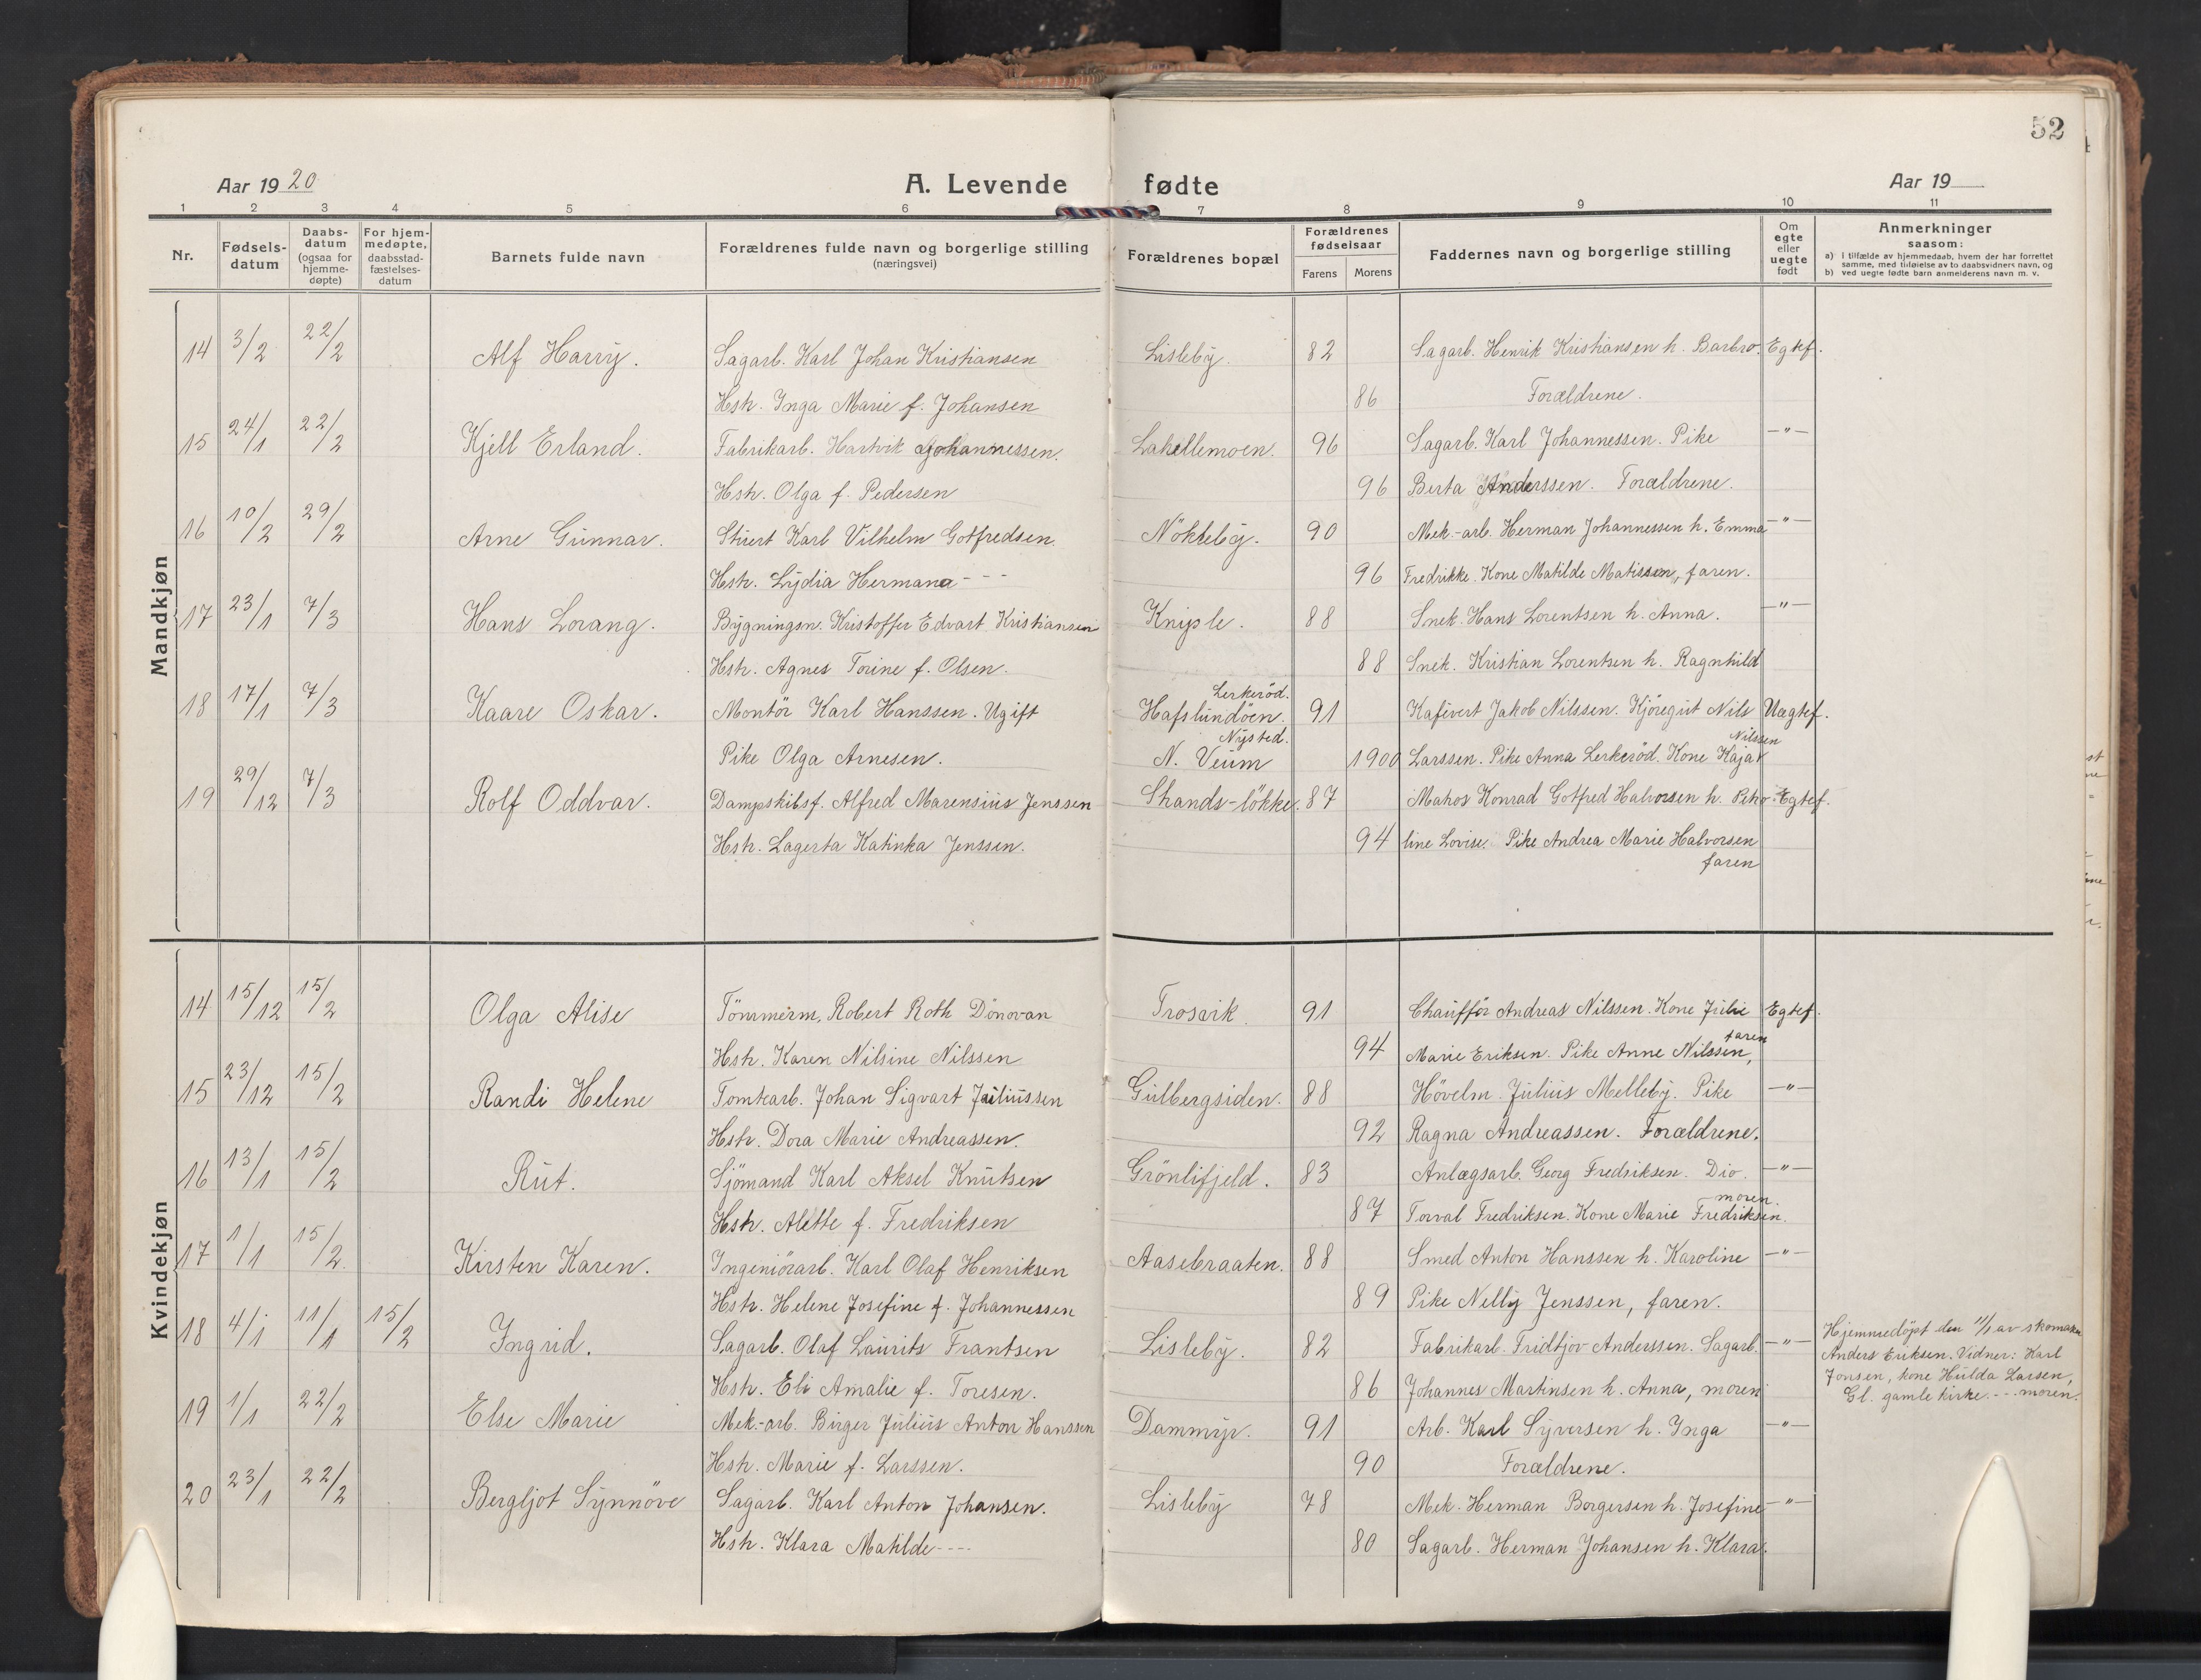 52
Aar 1920 A. Levende fødte Aar 19
1 2 3 4 5 6 7 8 9 10 11
Nr. Fødsels-datum Daabs-datum (ogsaa for hjemme-døpte) For hjem-medøpte, daabsstad-fæstelses-datum Barnets fulde navn Forældrenes fulde navn og borgerlige stilling (næringsvei) Forældrenes bopæl Forældrenes fødselsaar Farens Morens Faddernes navn og borgerlige stilling Om egte eller uegte født Anmerkninger saasom: a) i tilfælde av hjemmedaab, hvem der har forrettet samme, med tilføielse av to daabsvidners navn, og b) ved uegte fødte barn anmelderens navn m. v.
Mandkjøn
14 3/2 22/2 Alf Harry. Sagarb. Karl Johan Kristiansen Lisleby. 82 Sagarb. Henrik Kristiansen h. Barbro. Egtef.
Hstr. Inga Marie f. Johansen 86 Forældrene.
15 24/1 22/2 Kjell Erland. Fabrikarb. Hartvik Johannessen. Lahellemoen. 96 Sagarb. Karl Johannessen. Pike —"—
Hstr. Olga f. Pedersen 96 Berta Anderssen. Forældrene.
16 10/2 29/2 Arne Gunnar. Stuert Karl Vilhelm Gotfredsen. Nökleby. 90 Mek.-arb. Herman Johannessen h. Emma —"—
Hstr. Lydia Hermana - - - 96 Fredrikke. Kone Matilde Matissen, faren.
17 23/1 7/3 Hans Lorang. Bygningsn. Kristoffer Edvart Kristiansen Kniple. 88 Snek. Hans Lorentsen h. Anna. —"—
Hstr. Agnes Torine f. Olsen. 88 Snek. Kristian Lorentsen h. Ragnhild
Lerkeröd.
18 17/1 7/3 Kaare Oskar. Montör Karl Hanssen. Ugift Hafslundöen. 91 Kafévert Jakob Nilssen. Kjöregut Nils Uegtef.
Nysted. Nilssen
Pike Olga Arnesen. N. Veum 1900 Larssen. Pike Anna Lerkeröd. Kone Kaja
19 29/12 7/3 Rolf Oddvar. Dampskibsf. Alfred Marensius Jenssen Strands-lökke. 87 Matros Konrad Gotfred Halvorsen h. Petro- Egtef.
Hstr. Lagerta Katinka Jenssen. 94 line Lovise. Pike Andrea Marie Halvorsen
faren
Kvindekjøn
14 15/12 15/2 Olga Alise Tömmerm. Robert Roth Donovan Trosvik 91 Chaufför Andreas Nilssen. Kone Julie Egtef.
faren
Hstr. Karen Nilsine Nilssen 94 Marie Eriksen. Pike Anne Nilssen,
15 23/12 15/2 Randi Helene Tomtearb. Johan Sigvart Juliussen Gulbergsiden. 88 Hövelm. Julius Melleby. Pike —"—
Hstr. Dora Marie Andreassen. 92 Ragna Andreassen. Forældrene.
16 13/1 15/2 Rut. Sjömand Karl Aksel Knutsen Grönlifjeld. 83 Anlægsarb. Georg Fredriksen. Dio. —"—
moren.
Hstr. Alette f. Fredriksen 87 Torval Fredriksen. Kone Marie Fredriksen.
17 1/1 15/2 Kirsten Karen. Ingeniörarb. Karl Olaf Henriksen Aasebraaten. 88 Smed Anton Hanssen h. Karoline —"—
Hstr. Helene Josefine f. Johannessen 89 Pike Nelly Jenssen, faren.
18 4/1 11/1 15/2 Ingrid. Sagarb. Olaf Laurits Frantsen Lisleby. 82 Fabrikarb. Fridtjov Anderssen. Sagarb. —"—
Hstr. Eli Amalie f. Toresen. 86 Johannes Martinsen h. Anna, moren
Hjemmedöpt den 11/1 av skomaker
Anders Eriksen. Vidner: Karl
Jonsen, kone Hulda Larsen,
Gl. gamle kirke. - - - moren.
19 1/1 22/2 Else Marie Mek.-arb. Birger Julius Anton Hanssen Dammyr. 91 Arb. Karl Syversen h. Inga —"—
Hstr. Marie f. Larssen. 90 Forældrene.
20 23/1 22/2 Bergljot Synnöve Sagarb. Karl Anton Johansen. Lisleby 78 Mek. Herman Borgersen h. Josefine —"—
Hstr. Klara Matilde - - - - 80 Sagarb. Herman Johansen h. Klara.